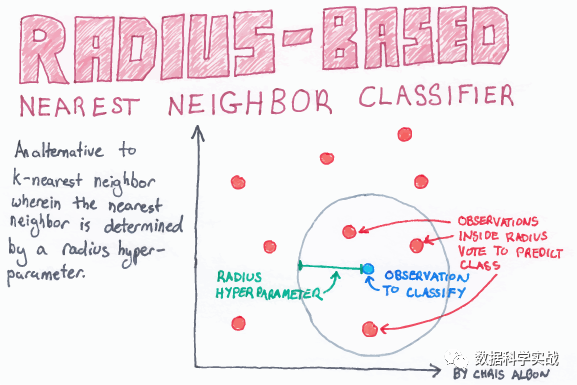 RADIUS-BASED
NEAREST NEIGHBOR CLASSIFIER
An alternative to
k-nearest neighbor
wherein the nearest
neighbor is determined
by a radius hyper-
parameter.
OBSERVATIONS
INSIDE RADIUS
VOTE TO PREDICT
CLASS
RADIUS
HYPERPARAMETER
OBSERVATION
TO CLASSIFY
数据科学实战
BY CHRIS ALBON